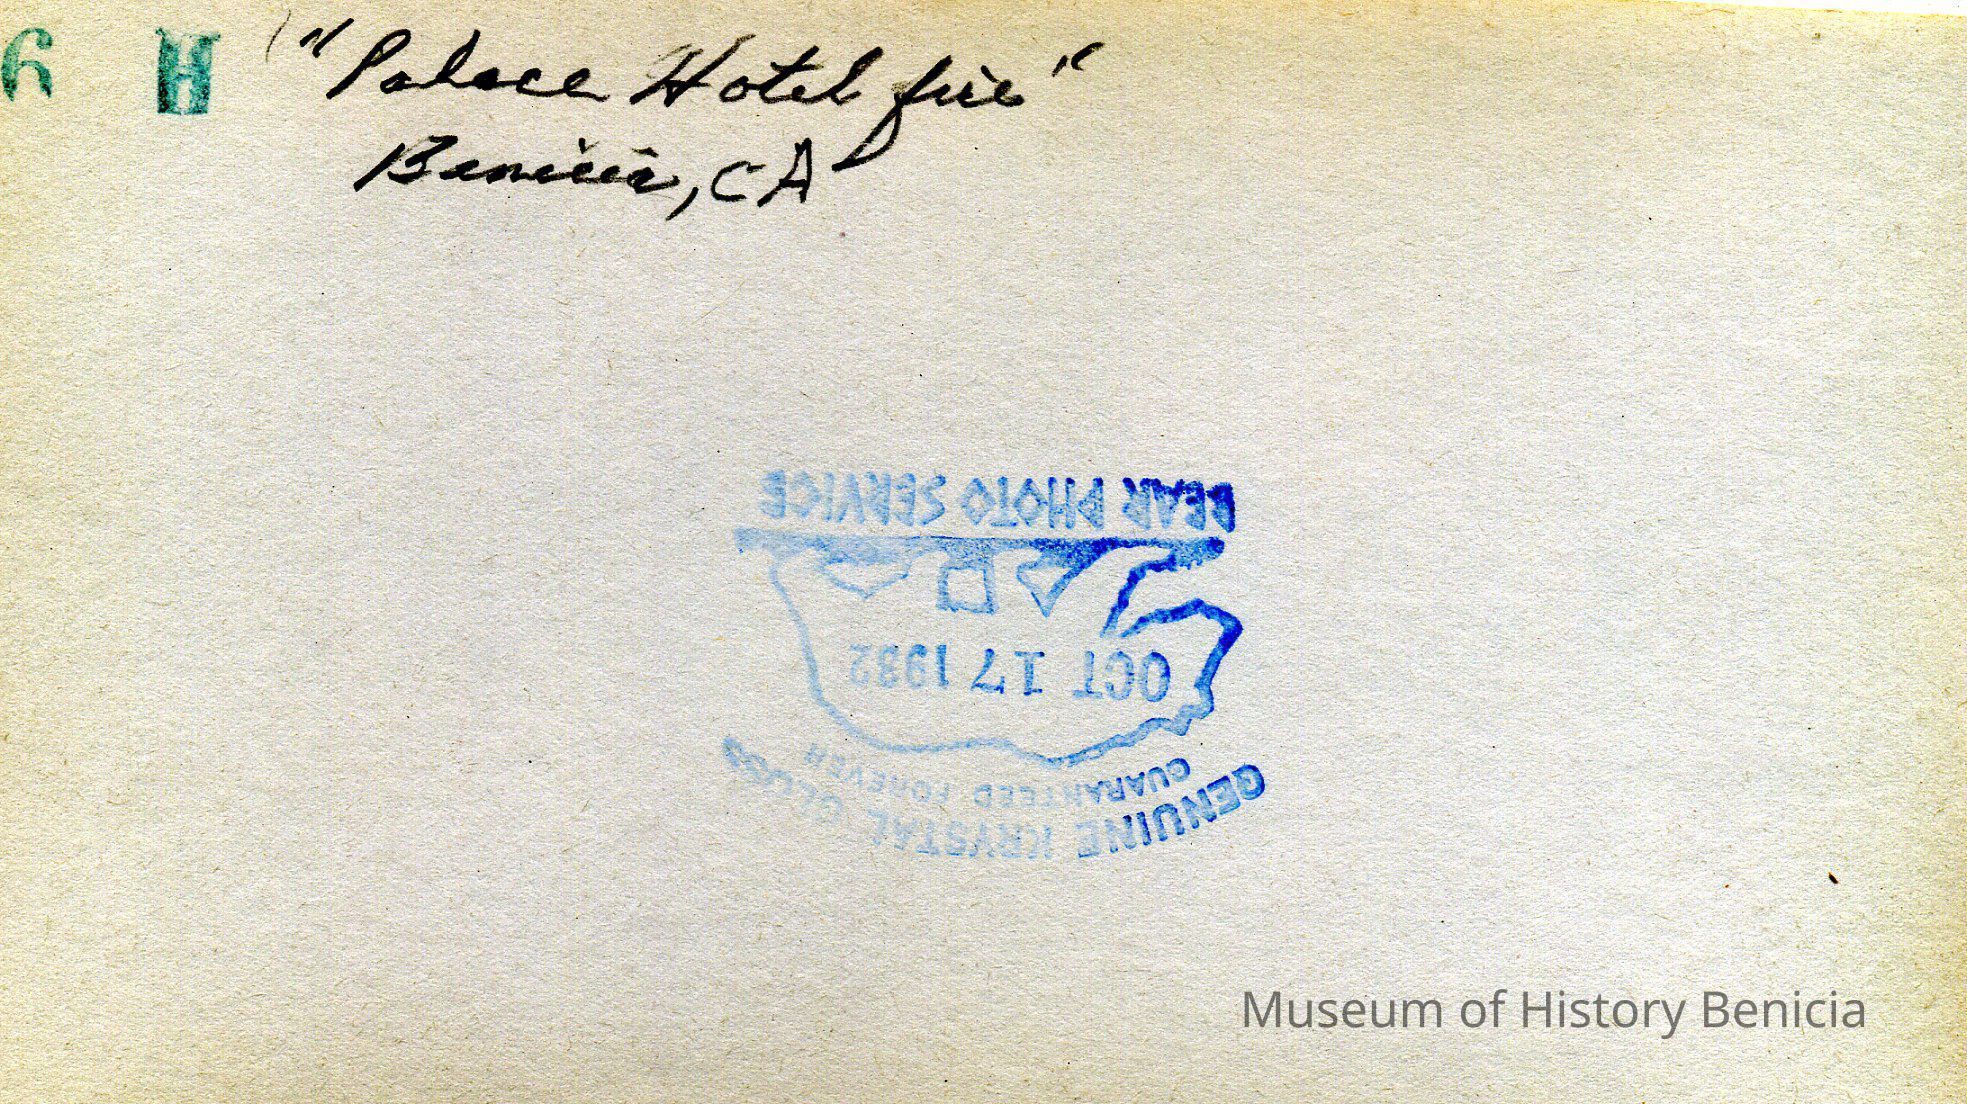 6 H
"Palace Hotel fire"
Benicia, CA
BEAR PHOTO SERVICE
OCT 17 1932
GUARANTEED FOREVER
GENUINE KRYSTAL GLOSS
Museum of History Benicia